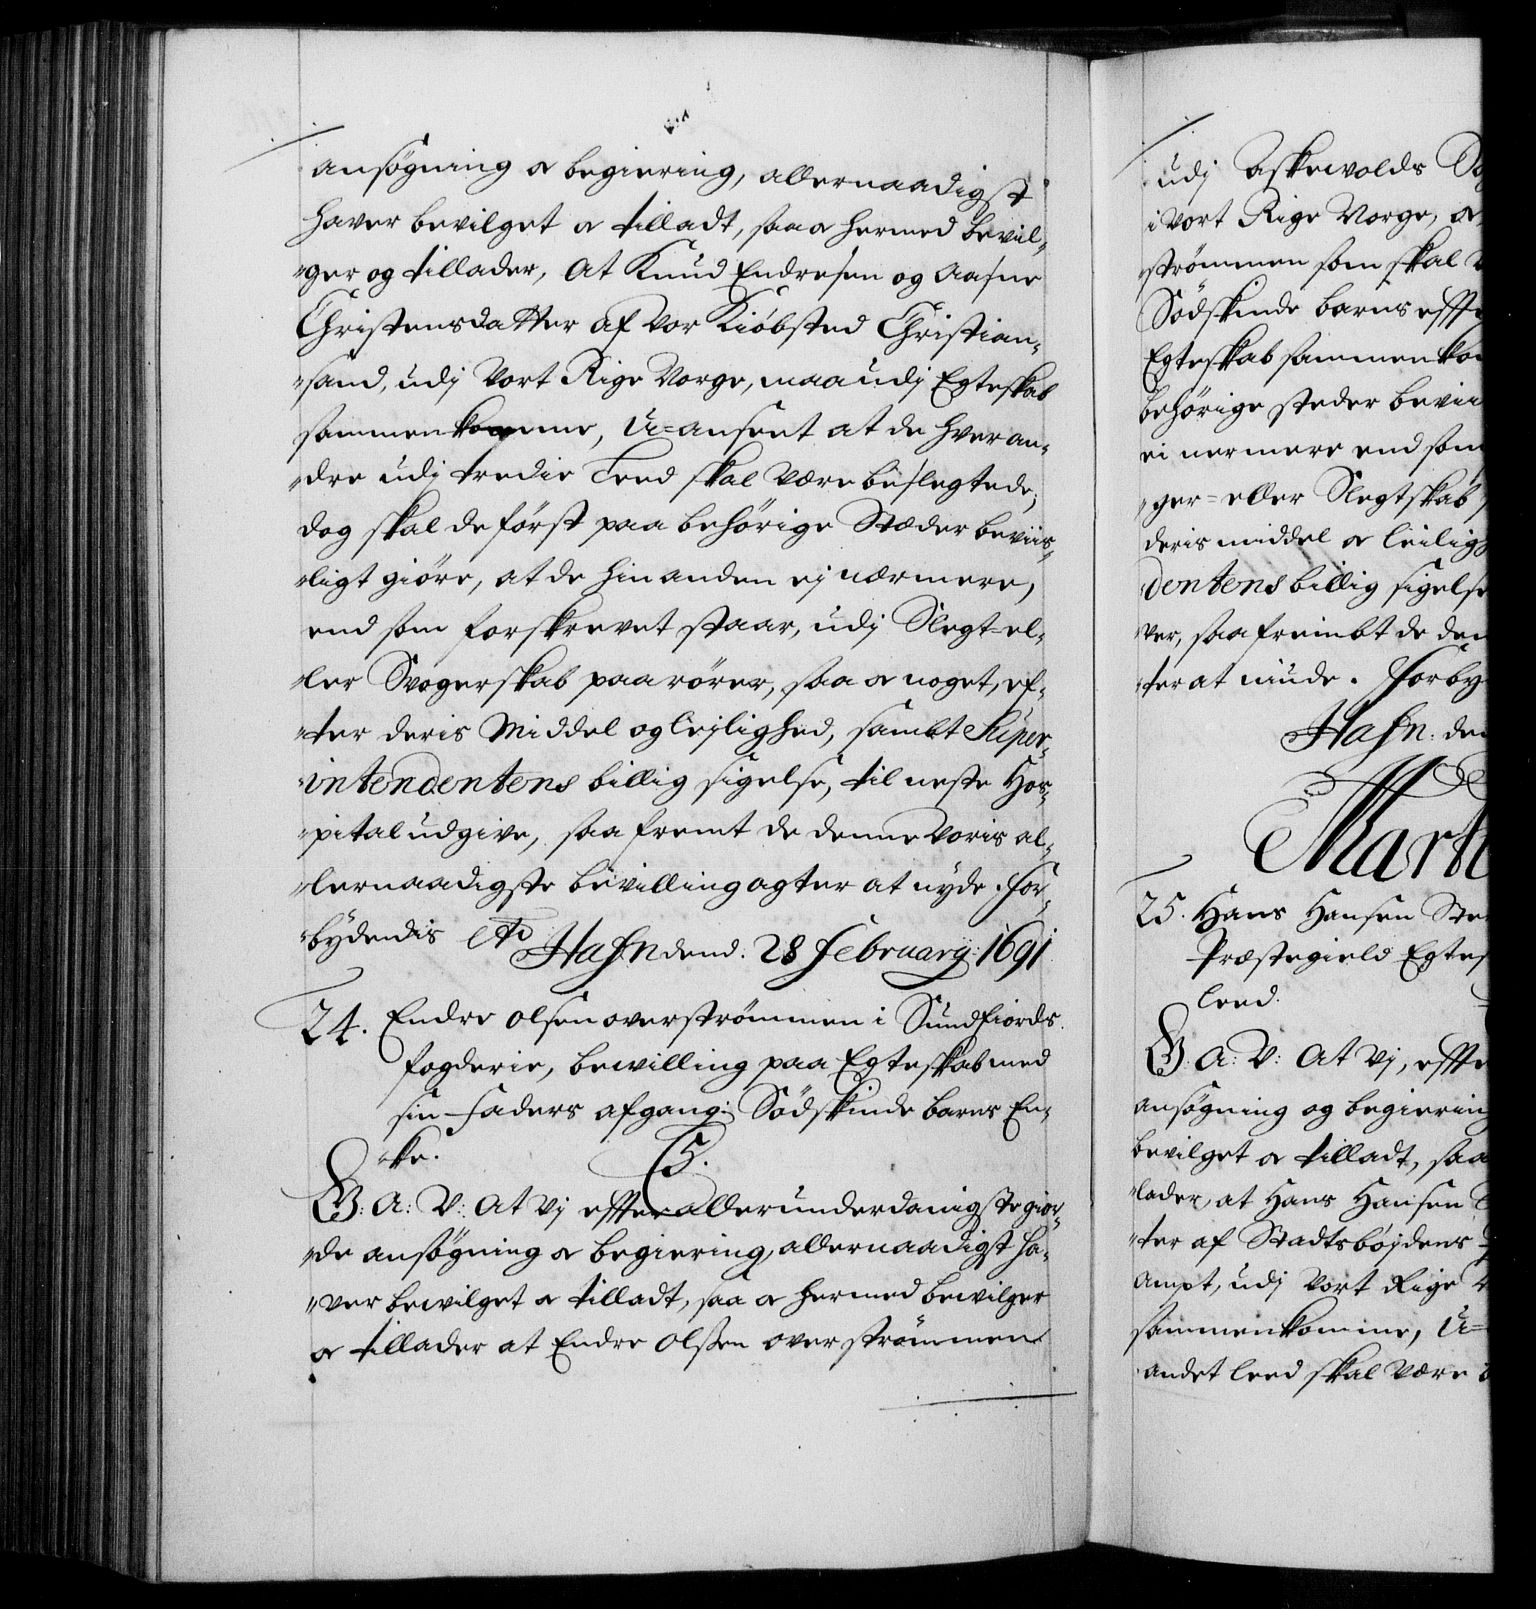 ansøgning oc begiering, allernaadigst
haver bevilget oc tilladt, saa oc hermed bevil-
ger og tillader, At Knud Endresen og Aasne
Christensdatter af Vor Kiøbsted Christian-
sand, udj Vort Rige Norge, maa udj Egteskab
sammenkomme, U-anseet at de hveran-
dre udj tredie Leed skal være beslegtede,
dog skal de først paa behørige Stæder beviis-
ligt giøre, at de hinanden ej nærmere,
end som forskrevet staar, udj Slegt- el-
ler Svogerskab paarører, saa oc noget, ef-
ter deris Middel og lejlighed, sambt Super-
intendentens billig sigelse, til neste Hos-
pital udgive, saa fremt de denne Voris al-
lernaadigste bevilling agter at nyde. For-
bydendis etc Hafn dend. 28 February: 1691
24. Endre Olsen overstrømmen i Sundfiords
fogderie, bewilling paa Egteskab med
sin Faders afgang: Sødskinde barns En-
ke. C5.
G: A: V: At Vj effter allerunderdanigste gior-
de ansøgning oc begiering, allernaadigst ha-
ver bewilget oc tilladt, saa oc hermed bewilger
oc tillader at Endre Olssen overstrømmen
udj Askewolds
i Vort Rige Norge, oc
strømmen som skal
Sødskinde barns efft
Egteskab sammenkom
behørige steder bevii
ei nermere end som
ger- eller Slegtskab
deris middel oc leiligh
dentens billig sigelse
ver, saafrembt de den
ter at niude. Forby
Hafn. den
Marti
25. Hans Hansen Sta
Præstegield Egtes
leed.
G. A: V: At Vj, effte
ansøgning og begiering
bevilget oc tilladt, saa
lader, at Hans Hansen
ter af Stadtsbøjdens
Ampt, udj Vort Rige
sammenkomme, U-
andet leed skal være